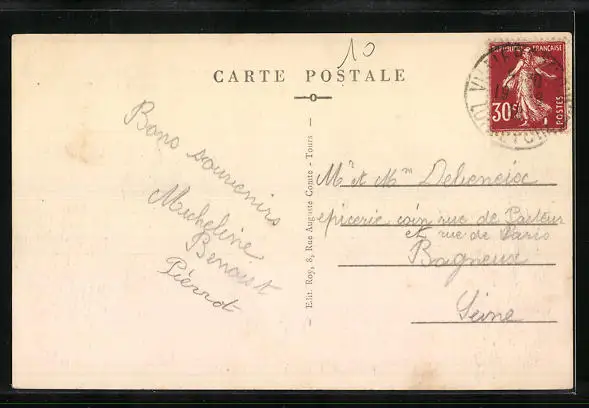 10
CARTE POSTALE
REPUBLIQUE FRANÇAISE
30c
POSTES
Bons souvenirs
Micheline
Benoist
Pierrot
Edit. Roy, 8, Rue Auguste Comte - Tours
Mr et Mme
epicerie coin rue de Pasteur
et rue de Paris
Bagneux
Seine